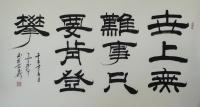 世上無
難事只
要肯登
攀